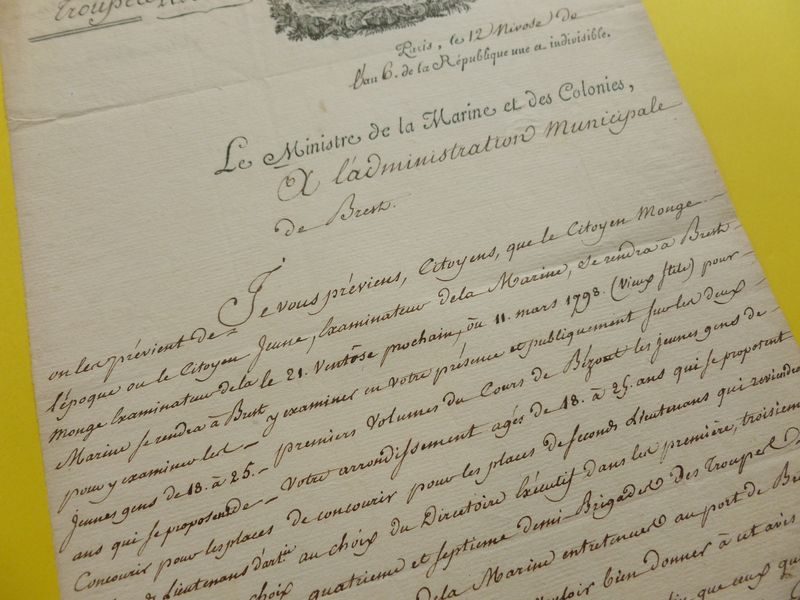 Troupes
Paris, le 12 Nivose de
l'an 6. de la République une et indivisible.
Le Ministre de la Marine et des Colonies,
A l'administration Municipale
de Brest.
Je vous préviens, Citoyens, que le Citoyen Monge
Jeune, Examinateur de la Marine, se rendra à Brest
le 21. Ventôse prochain, ou 11. mars 1798. (Vieux stile) pour
y examiner en votre présence et publiquement sur les deux
premiers Volumes du Cours de Bézout les jeunes gens de
votre arrondissement agés de 18. à 25. ans qui se proposent
de concourir pour les places de seconds Lieutenans qui reviendront
au choix du Directoire Exécutif dans les première, troisieme
quatrieme et septieme demi-Brigades des Troupes
de la Marine entretenues au port de
bien donner à cet avis
que ceux qu
on les prévient de
l'époque ou le Citoyen
Monge Examinateur de la
Marine se rendra à Brest
pour y examiner les
jeunes gens de 18. à 25.
ans qui se proposent de
Concourir pour les places
de Lieutenans d'artie
choix